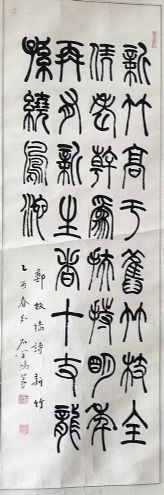 新竹高于舊竹枝全
凭老幹爲扶持明年
再有新生者十丈龍
孫繞鳳池
鄭板橋詩新竹
乙酉春